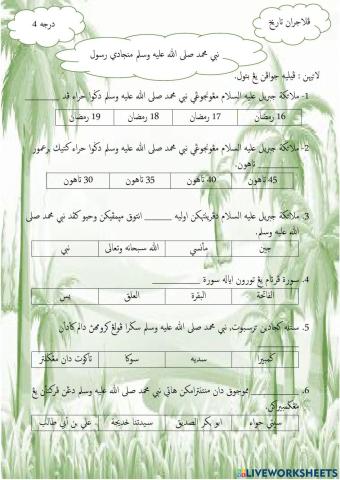 ڤلاجران تاريخ
درجه 4
نبي محمد صلى الله عليه وسلم منجادي رسول
لاتيهن : ڤيليه جواڤن يڠ بتول.
1- ملائكة جبريل عليه السلام مڠونجوڠي نبي محمد صلى الله عليه وسلم دݢوا حراء ڤد ________
16 رمضان 17 رمضان 18 رمضان 19 رمضان
2- ملائكة جبريل عليه السلام مڠونجوڠي نبي محمد صلى الله عليه وسلم دݢوا حراء كتيك برعمور
________ تاهون.
45 تاهون 40 تاهون 35 تاهون 30 تاهون
3. ملائكة جبريل عليه السلام دڤرينتهكن اوليه ______ انتوق مڽمڤيكن وحيو كڤد نبي محمد صلى
الله عليه وسلم.
جين مأنسي الله سبحانه وتعالى نبي
4. سورة ڤرتام يڠ تورون اياله سورة ________
الفاتحة البقرة العلق يس
5. ستله كجادين ترسبوت، نبي محمد صلى الله عليه وسلم سݢرا ڤولڠ كرومهڽ دالم كأدأن
________
ݢمبيرا سديه سوك تاكوت دان مڠݢلتر
6. ________ ممبوجوق دان منتنترامكن هاتي نبي محمد صلى الله عليه وسلم دڠن ڤركتأن يڠ
مڠݢمبيراكن.
سيتي حواء ابو بكر الصديق سيدتنا خديجة علي بن أبي طالب
LIVEWORKSHEETS